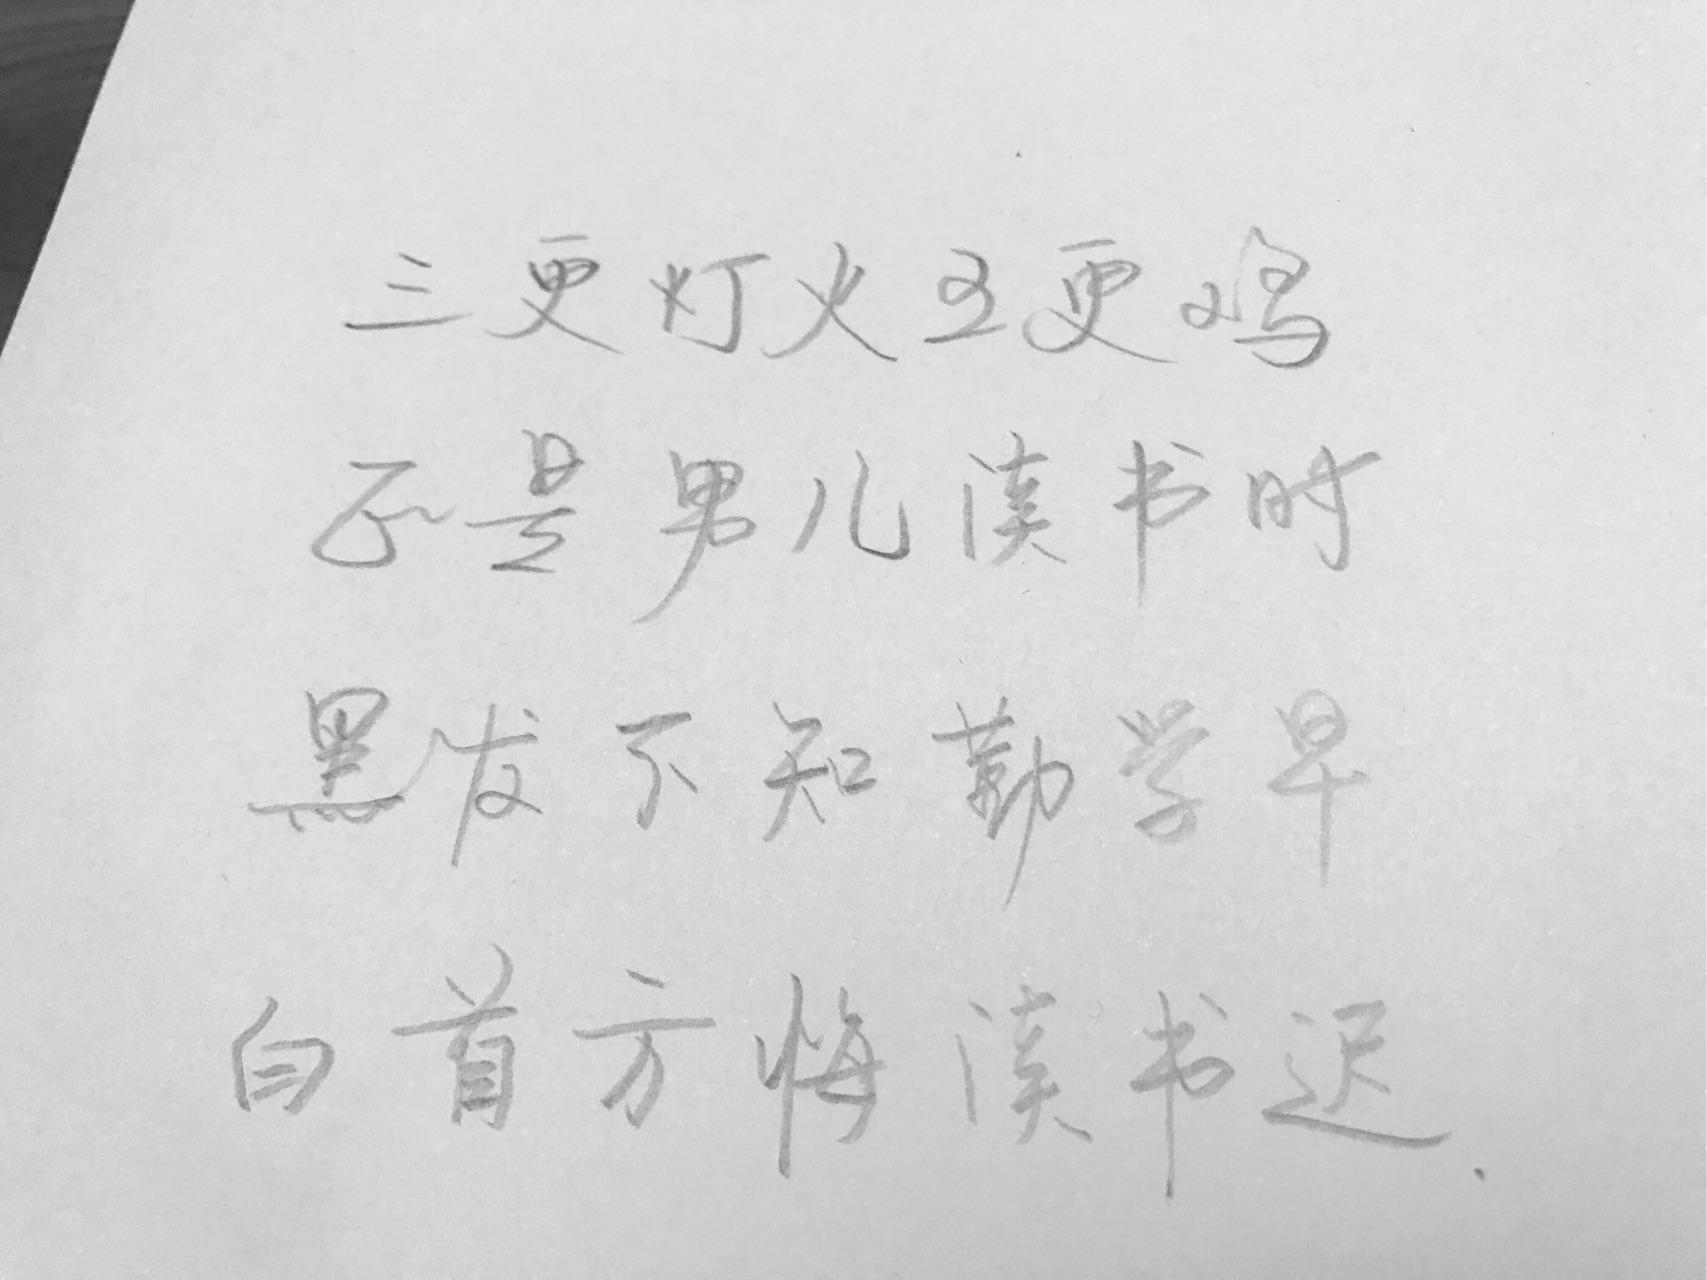 三更灯火五更鸡
正是男儿读书时
黑发不知勤学早
白首方悔读书迟.